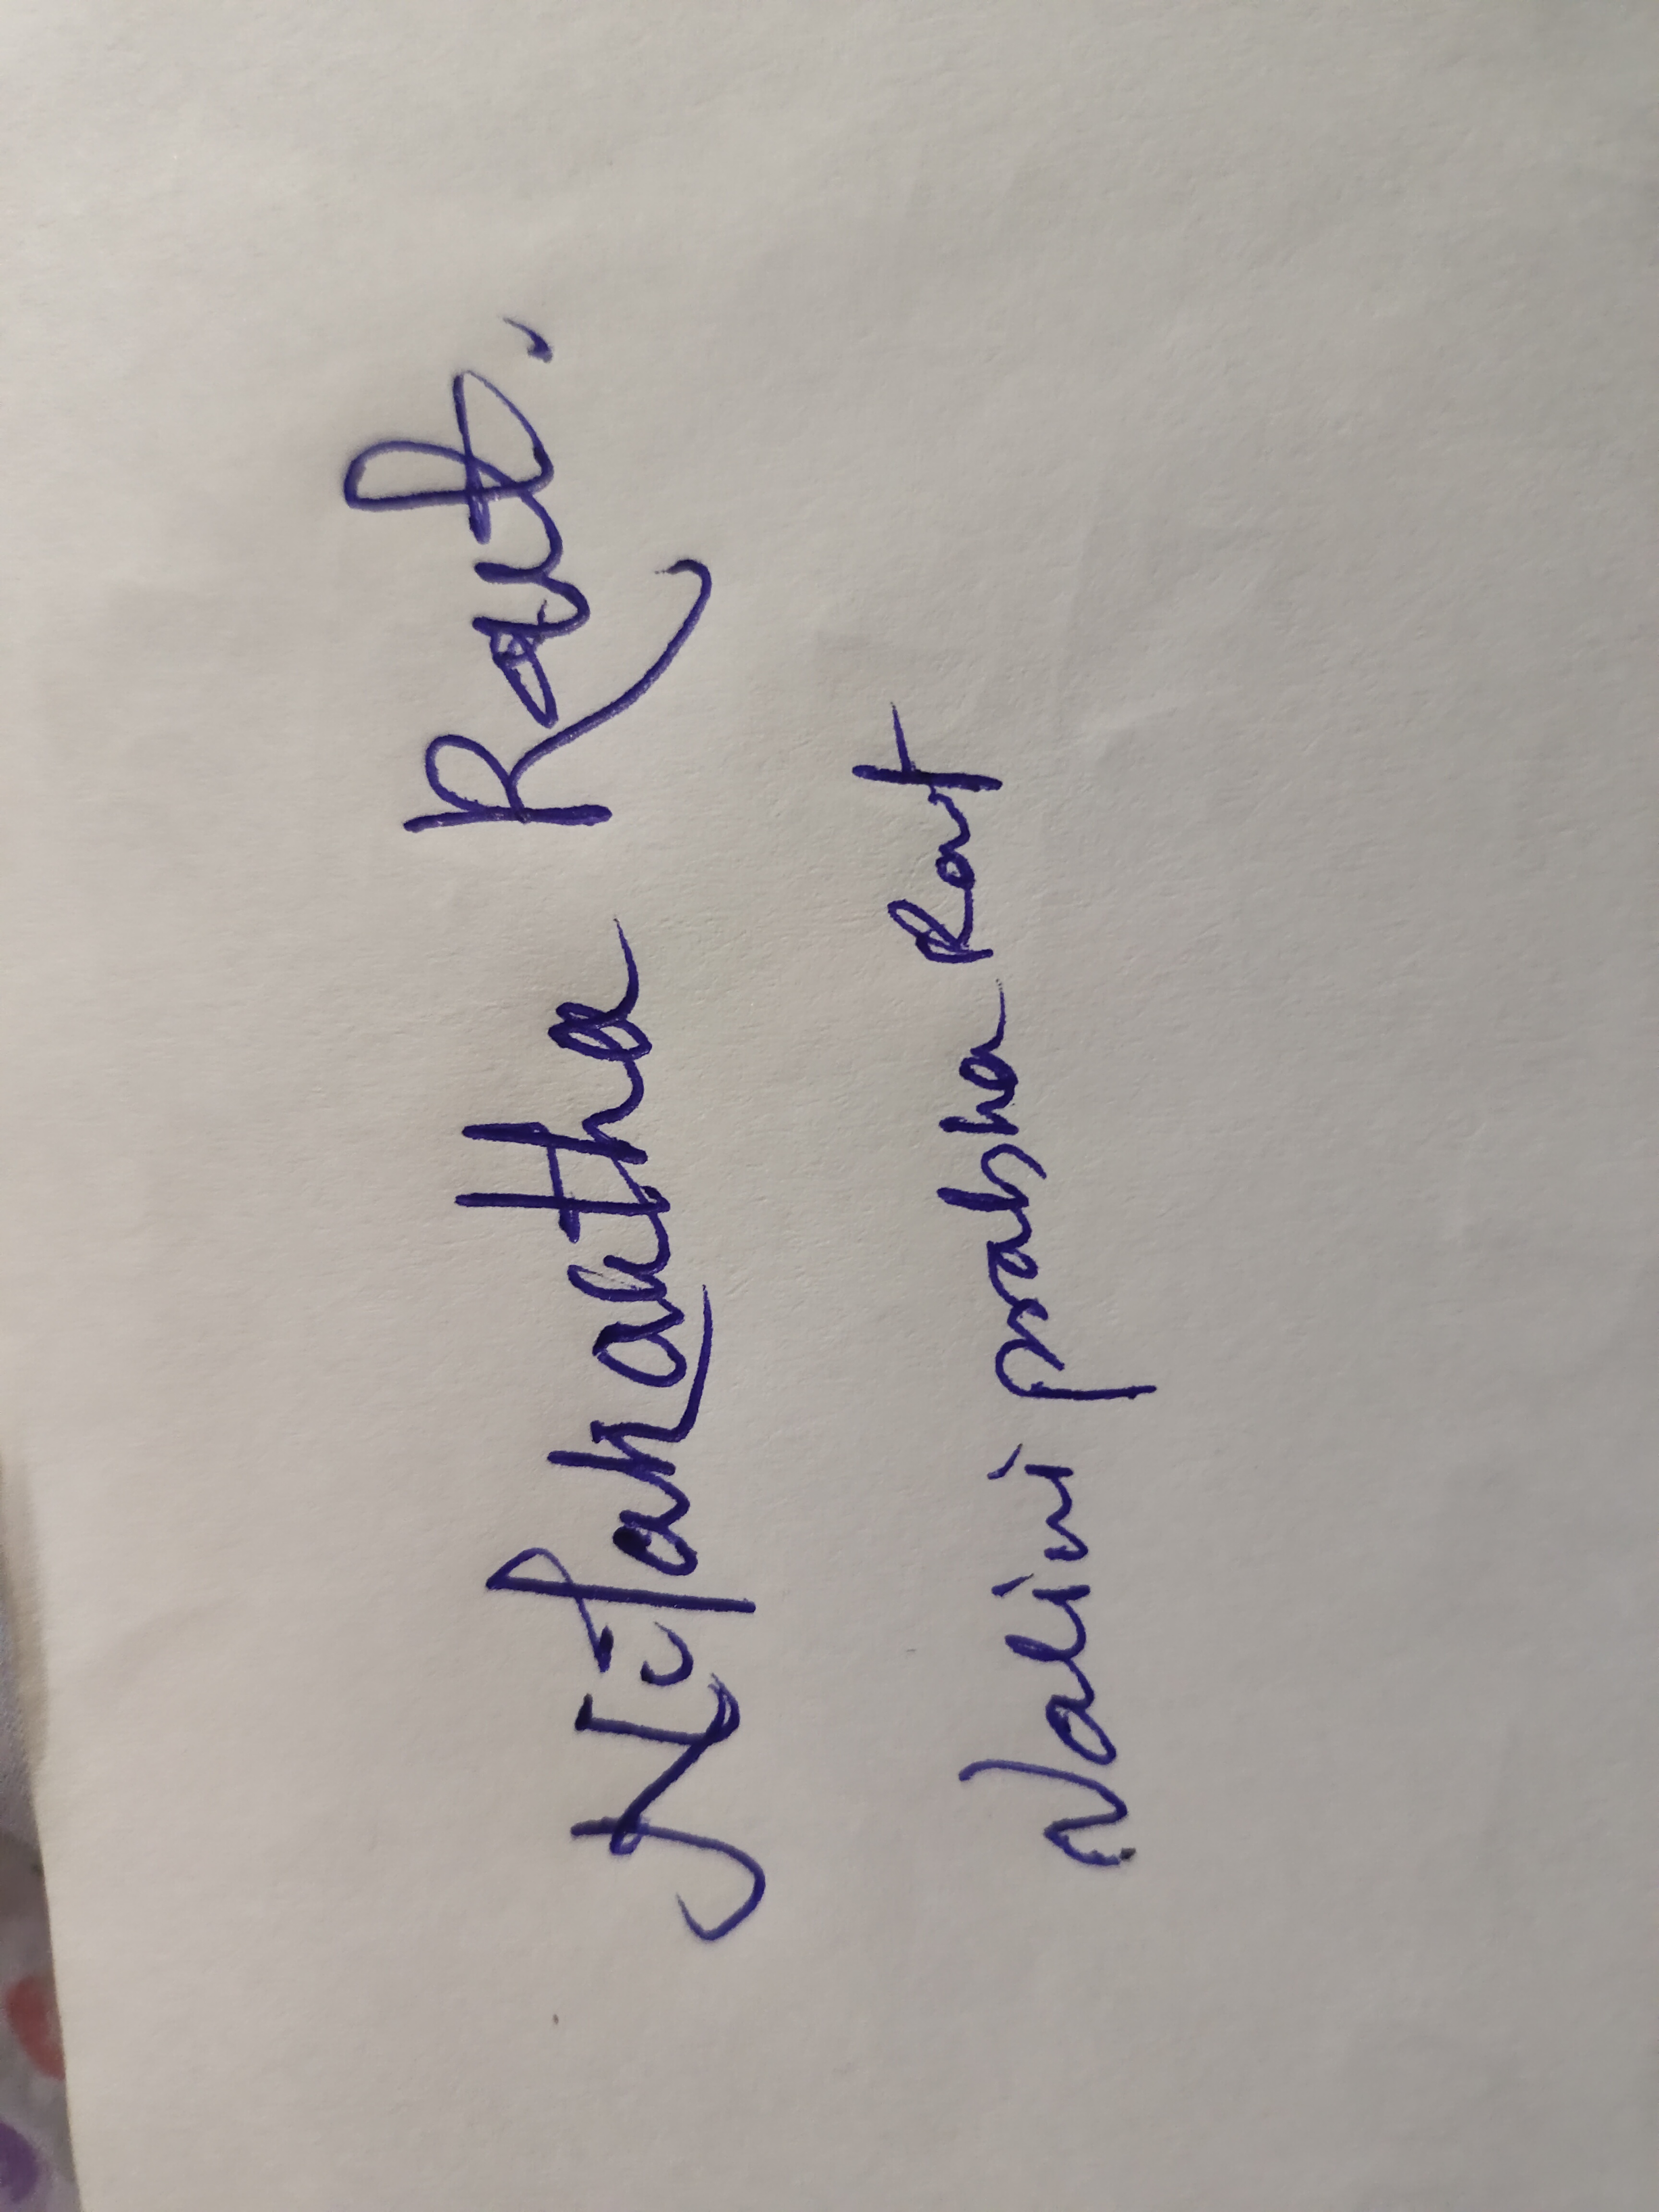 Nilakantha Rout.
Nalini prabha Rout